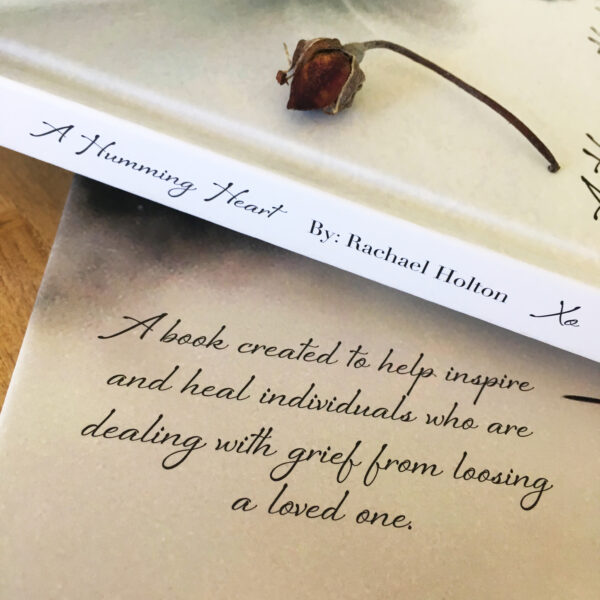 A Humming Heart By: Rachael Holton Xo
A book created to help inspire
and heal individuals who are
dealing with grief from loosing
a loved one.